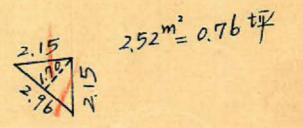 2.15
1.70
2.15
2.96
2.52m²=0.76坪